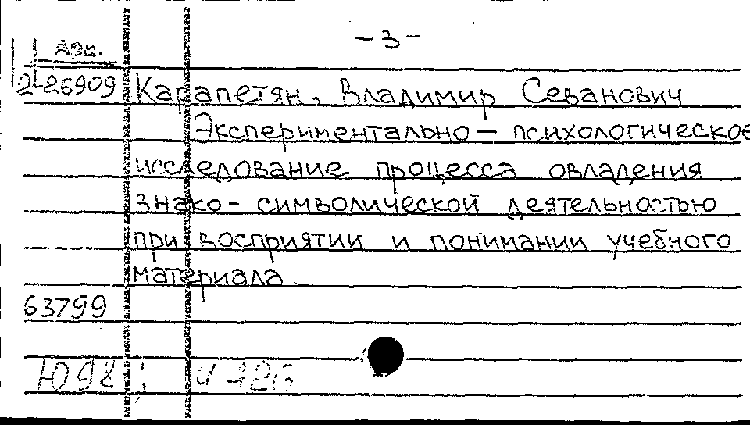 - 3 -
Дзи.
2-26909 Карапетян, Владимир Севанович
Экспериментально-психологическое
исследование процесса овладения
знако-символической деятельностью
при восприятии и понимании учебного
материала
63799
Ю98